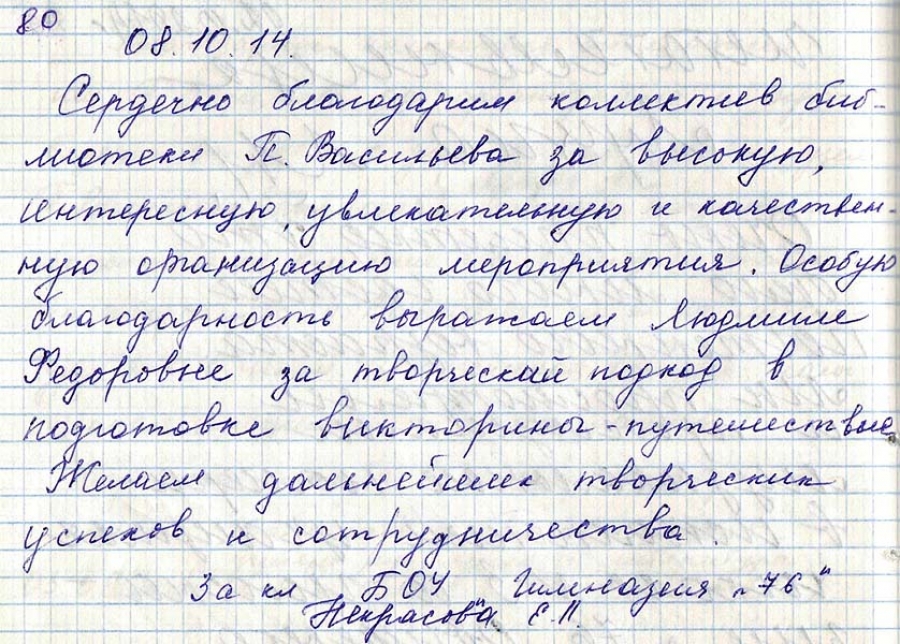 80
08.10.14.
Сердечно благодарим коллектив биб-
лиотеки П. Васильева за высокую,
интересную, увлекательную и качествен-
ную организацию мероприятия. Особую
благодарность выражаем Людмиле
Федоровне за творческий подход в
подготовке викторины-путешествие
Желаем дальнейших творческих
успехов и сотрудничества.
За кл БОУ Гимназия „76"
Некрасова Е.П.